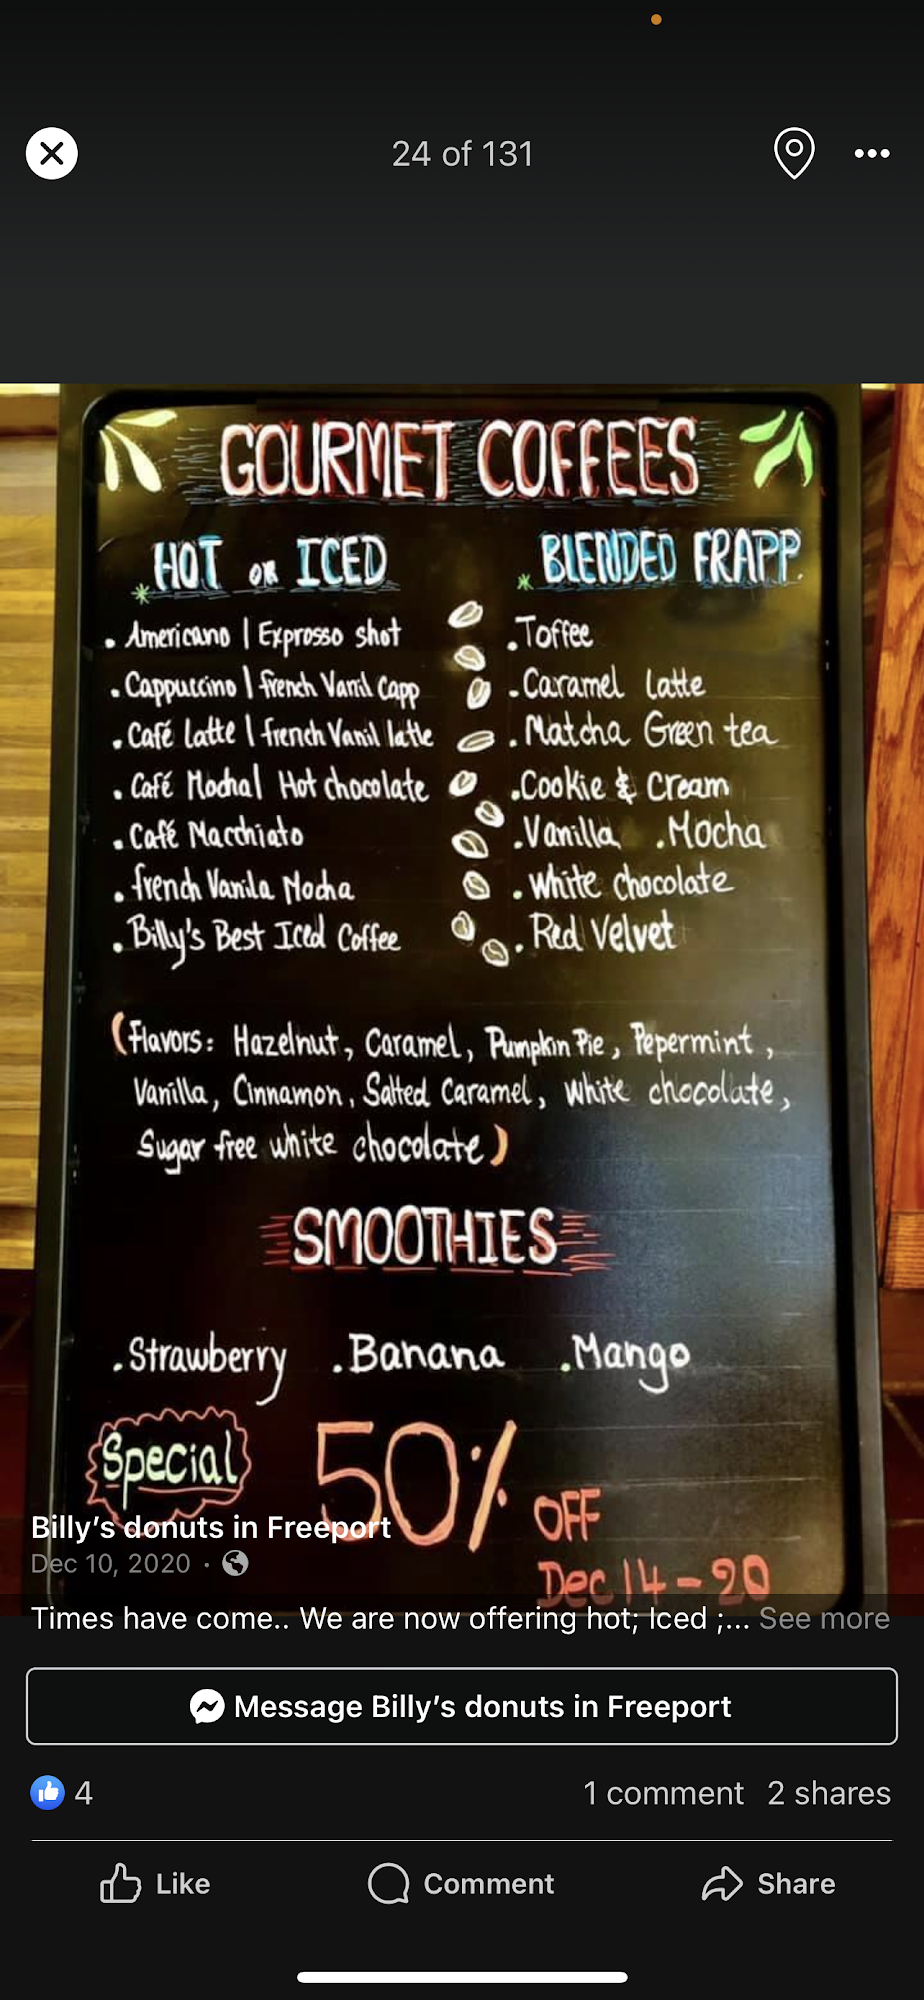 24 of 131
GOURMET COFFEES
HOT OR ICED
* 
. Americano | Exprosso shot
. Cappuccino | french Vanil Capp
. Café Latte | french Vanil latte
. Café Mocha | Hot chocolate
. Café Macchiato
. french Vanila Mocha
. Billy's Best Iced Coffee
* BLENDED FRAPP.
. Toffee
. Caramel latte
. Matcha Green tea
. Cookie & Cream
. Vanilla . Mocha
. white chocolate
. Red Velvet
(Flavors: Hazelnut, Caramel, Pumpkin Pie, Pepermint,
Vanilla, Cinnamon, Salted Caramel, white chocolate,
Sugar free white chocolate)
SMOOTHIES
. Strawberry . Banana . Mango
Special 50% OFF
Dec 14-20
Billy's donuts in Freeport
Dec 10, 2020 ·
Times have come.. We are now offering hot; Iced ;... See more
Message Billy's donuts in Freeport
4 1 comment 2 shares
Like Comment Share